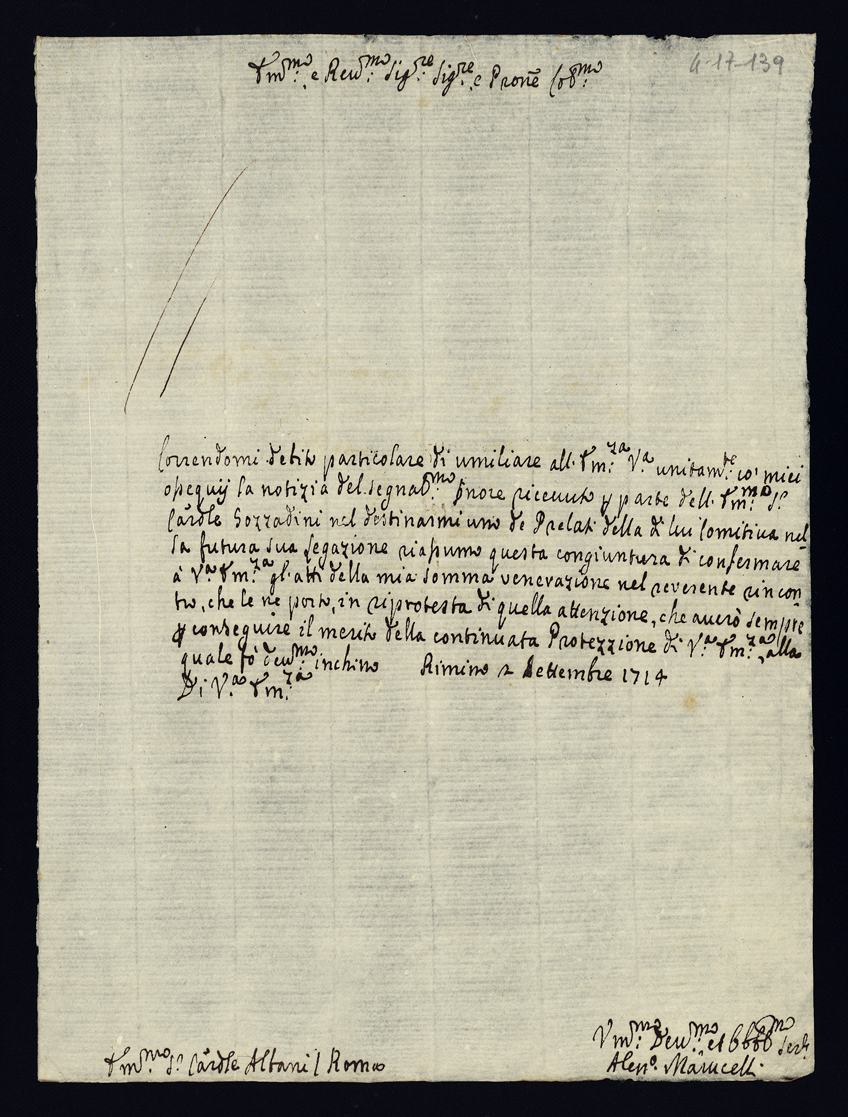 4-17-139
Em.mo e Rev.mo Sig.re Sig.re e Prone Col.mo
Correndomi debito particolare di umiliare all' Em.za V.a unitam.te co' miei
ossequij la notizia del segnalat.mo onore ricevuto p parte dell' Em.mo S.r
Cardle Gozzadini nel destinarmi uno de Prelati della di lui Comitiva nel-
la futura sua Legazione riassumo questa congiuntura di confermare
à V.a Em.za gl'atti della mia somma venerazione nel reverente rincon
tro, che le ne porto, in riprotesta di quella attenzione, che averò sempre
p conseguire il merito della continuata Protezzione di V.a Em.za, alla
quale fò dev.mo inchino Rimino 2 Settembre 1714
Di V.a Em.za
Em.mo S.r Cardle Albani / Roma
Um.mo Dev.mo et Obb.mo Ser.
Aless.o Marucelli